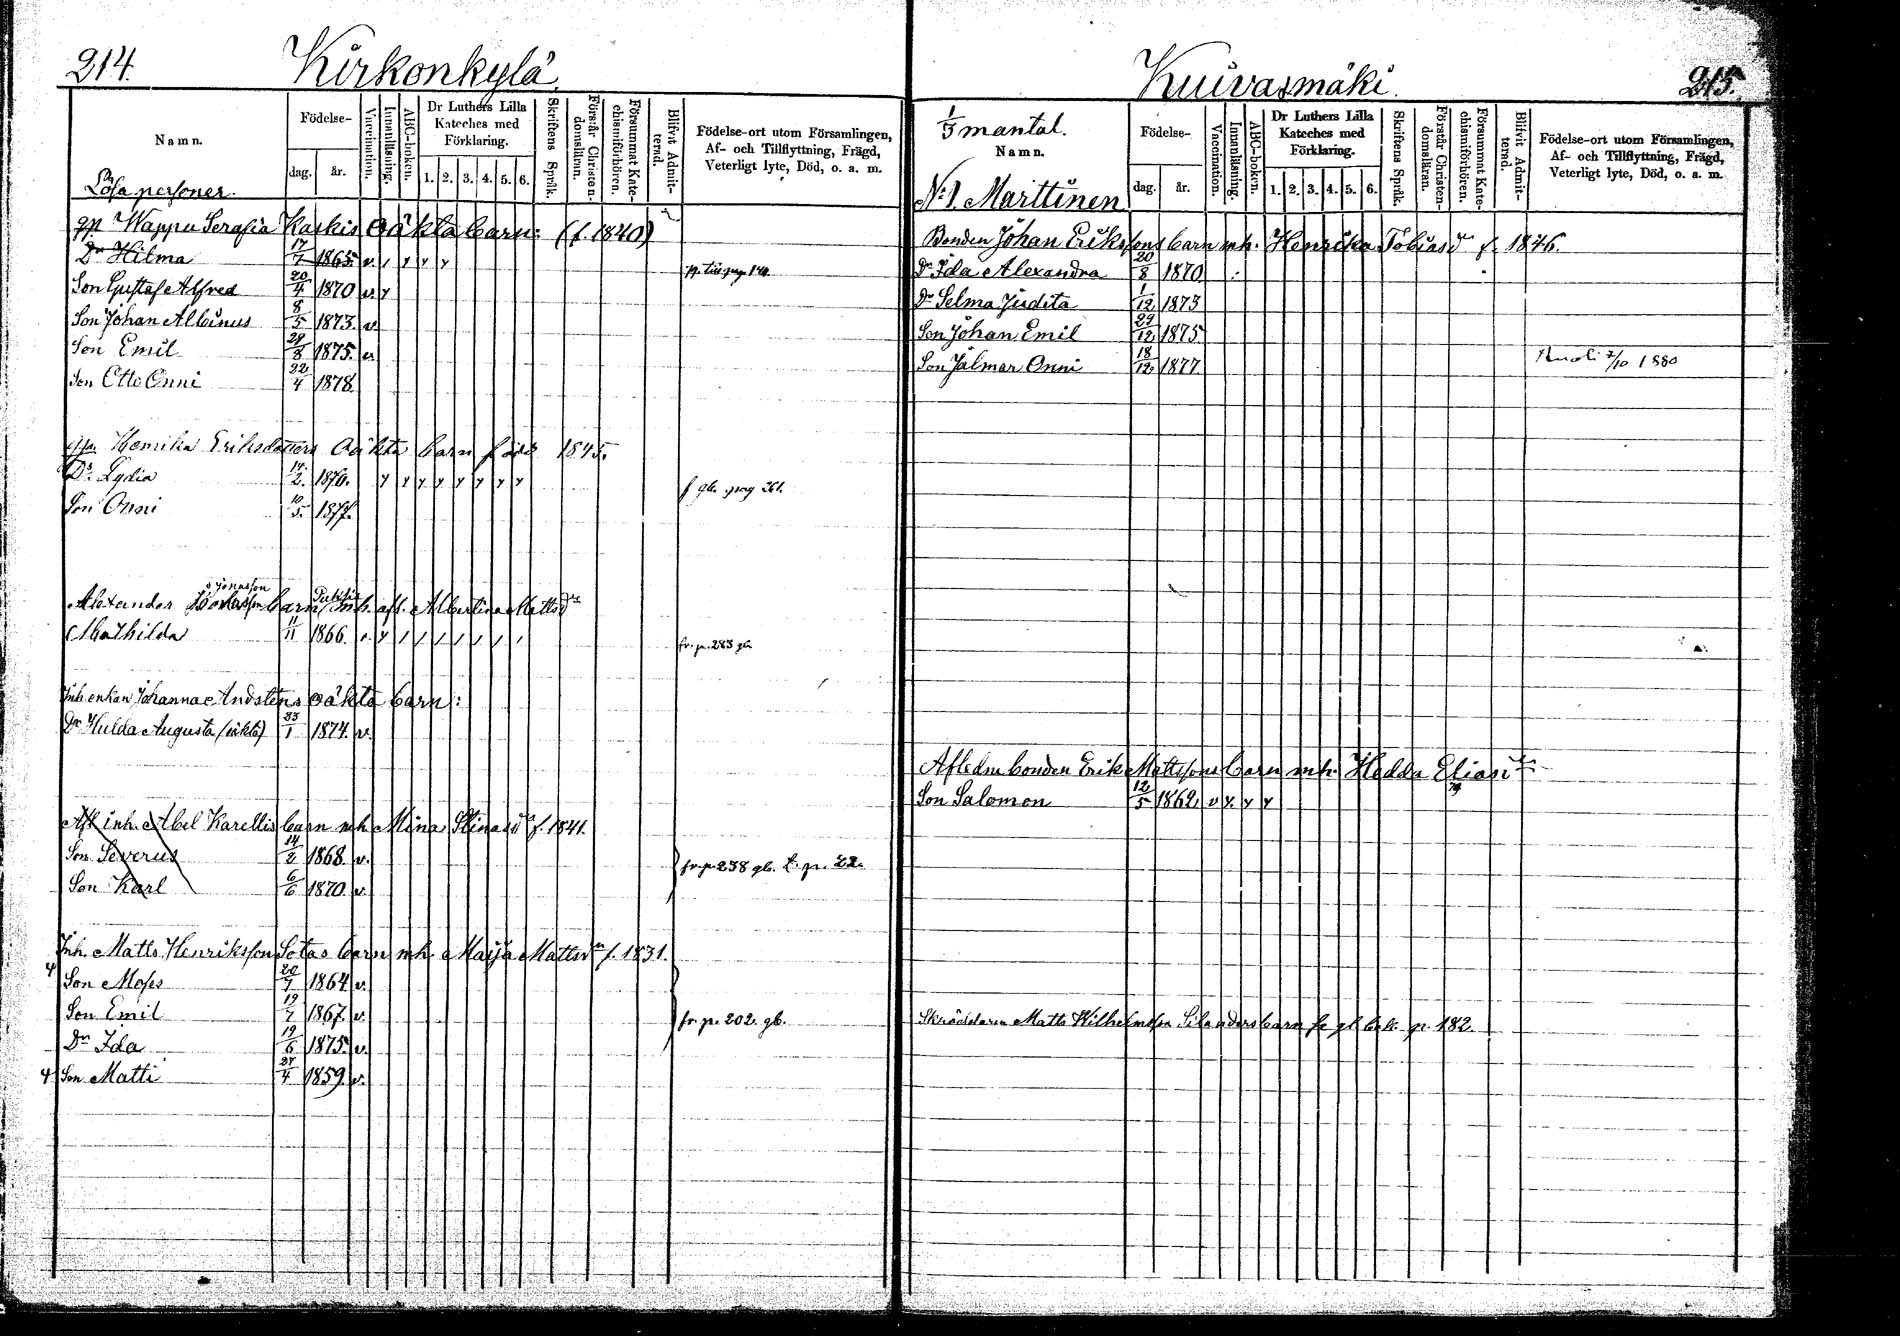 214.
Kirkonkylä
Namn.
Födelse-
dag.
år.
Vaccination.
Innanläsning.
ABC-boken.
Dr Luthers Lilla
Kateches med
Förklaring.
1. 2. 3. 4. 5. 6.
Skriftens Språk.
Förstår Christen-
domsläran.
Försummat Kate-
chismiförhören.
Blifvit Admit-
terad.
Födelse-ort utom Församlingen,
Af- och Tillflyttning, Frägd,
Veterligt lyte, Död, o. a. m.
Lösa personer.
qp. Wappu Serafia Kaskis oäkta barn: (f. 1840)
Dr Hilma 17/7 1865 v. / y y y
Son Gustaf Alfred 20/4 1870 v. y
Son Johan Albinus 8/5 1873. v.
Son Emil 28/8 1875. v
Son Otto Onni 22/4 1878.
qp. Henrika Eriksdotters oäkta barn född 1845.
Dr Lydia 14/2. 1870. y y y y y y y y f gb. pag 261.
Son Onni 10/5. 1877.
Alexander Jonasson barn mh. afl. Albertina Mattsdr
Mathilda 11/11 1866. v. y / / / / / / / fr. p. 283 gb
Inh. enkan Johanna Andstens oäkta barn:
Dr Hulda Augusta (äkta) 23/1 1874. v.
Afl. inh. Abel Karellis barn mh Mina Stinasdr f. 1841.
Son Severus 14/2 1868 v. fr. p. 238 gb. t. p. 22.
Son Karl 6/6 1870. v.
Inh. Matts Henriksson Sotas barn mh. Maija Mattsdr f. 1831.
Son Moses 20/7 1864 v.
Son Emil 19/7 1867. v. fr. p. 202. gb.
Dr Ida 19/6 1875. v.
Son Matti 27/4 1859. v.
Kuivasmäki.
215.
1/3 mantal.
Namn.
Födelse-
dag.
år.
Vaccination.
Innanläsning.
ABC-boken.
Dr Luthers Lilla
Kateches med
Förklaring.
1. 2. 3. 4. 5. 6.
Skriftens Språk.
Förstår Christen-
domsläran.
Försummat Kate-
chismiförhören.
Blifvit Admit-
terad.
Födelse-ort utom Församlingen,
Af- och Tillflyttning, Frägd,
Veterligt lyte, Död, o. a. m.
N:1. Marttinen
Bonden Johan Erikssons barn mh. Henrika Tobiasdr f. 1846.
Dr Ida Alexandra 20/8 1870
Dr Selma Judita 1/12 1873
Son Johan Emil 29/12 1875
Son Jalmar Onni 18/12 1877 Kuoli 7/10 1880
Afledne bonden Erik Mattssons barn mh. Hedda Eliasdr
Son Salomon 12/5 1862 v y. y y
Skräddaren Matts Wilhelmsson Silanders barn se gl. bok. p. 182.